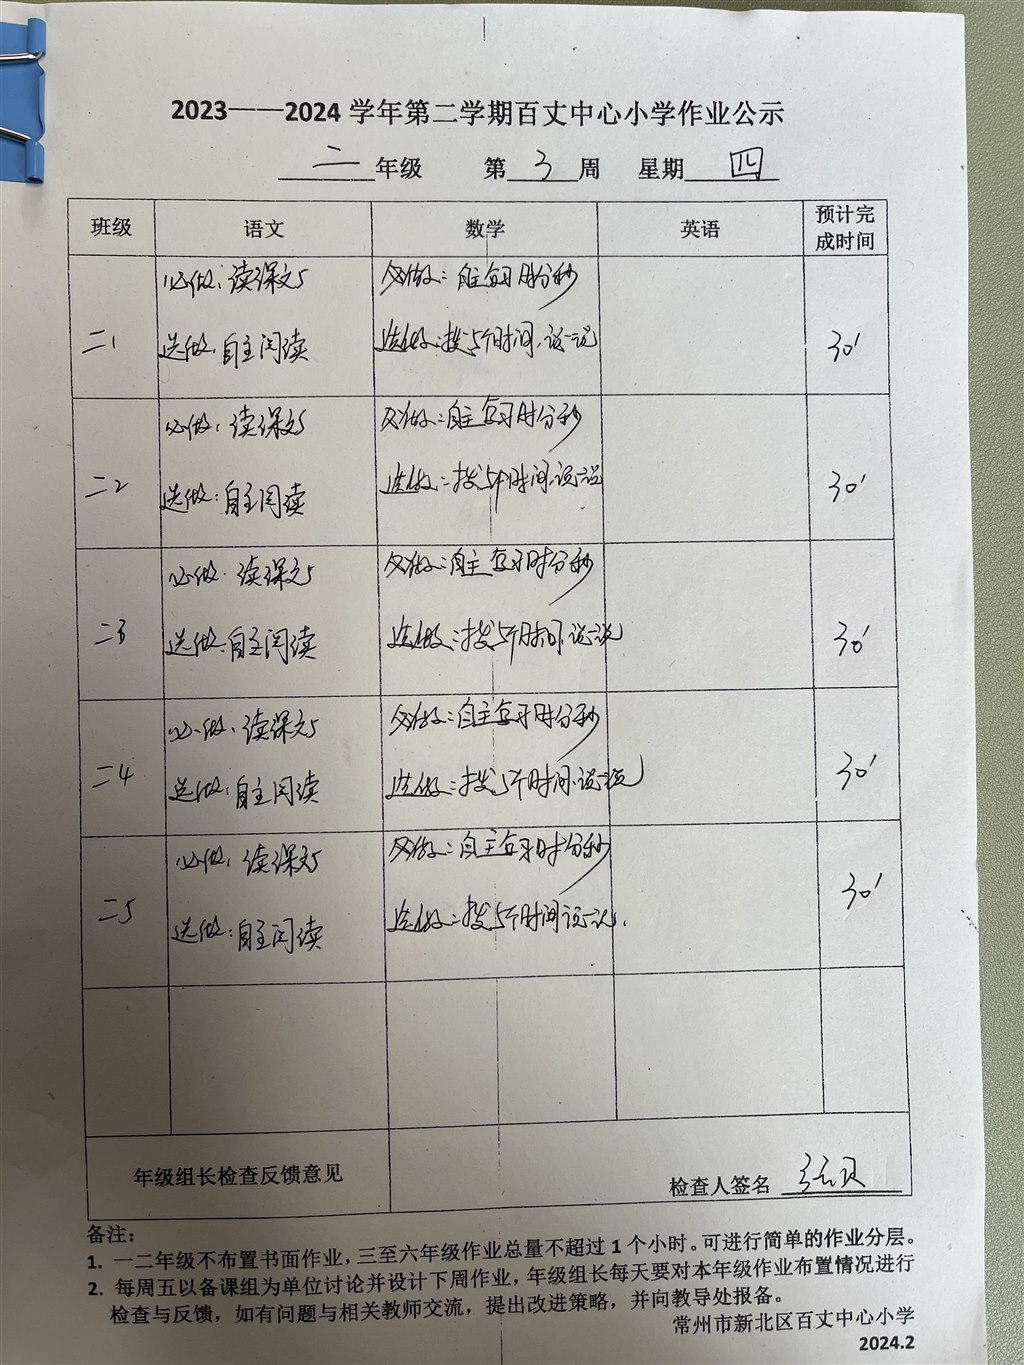 2023——2024 学年第二学期百丈中心小学作业公示
二年级 第 3 周 星期 四
班级 语文 数学 英语 预计完成时间
二1 必做：读课文5 必做：自主复习时分秒 30'
选做：自主阅读 选做：拨5个时间，说一说
二2 必做：读课文5 必做：自主复习时分秒 30'
选做：自主阅读 选做：拨5个时间，说一说
二3 必做：读课文5 必做：自主复习时分秒 30'
选做：自主阅读 选做：拨5个时间，说一说
二4 必做：读课文5 必做：自主复习时分秒 30'
选做：自主阅读 选做：拨5个时间，说一说
二5 必做：读课文5 必做：自主复习时分秒 30'
选做：自主阅读 选做：拨5个时间说一说.
年级组长检查反馈意见 检查人签名
备注：
1. 一二年级不布置书面作业，三至六年级作业总量不超过 1 个小时。可进行简单的作业分层。
2. 每周五以备课组为单位讨论并设计下周作业，年级组长每天要对本年级作业布置情况进行
检查与反馈，如有问题与相关教师交流，提出改进策略，并向教导处报备。
常州市新北区百丈中心小学
2024.2